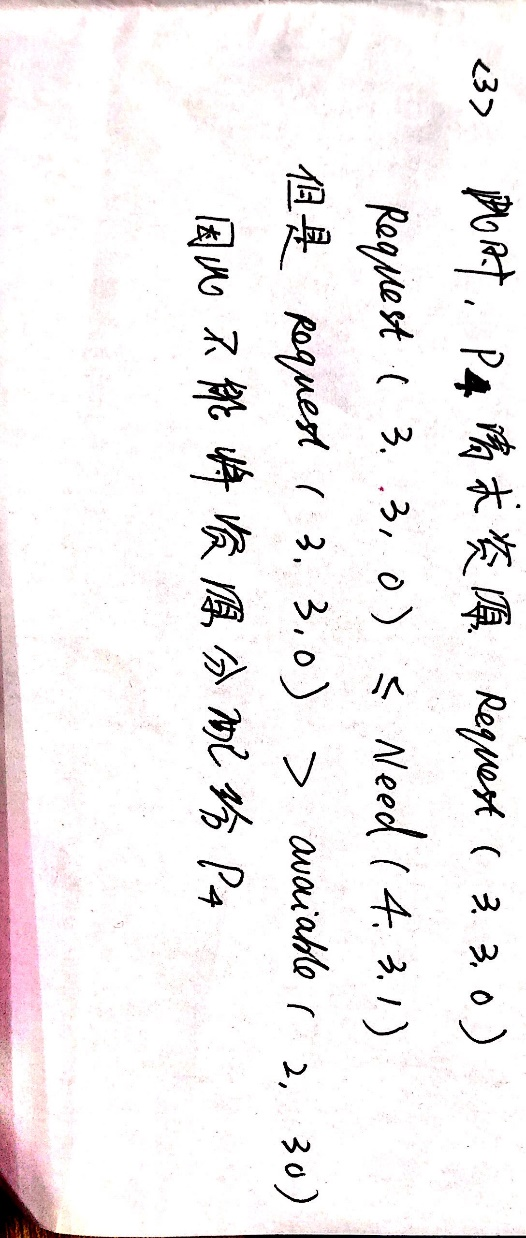 <3> 此时, P4 请求资源 Request ( 3. 3. 0 )
Request ( 3. 3, 0 ) ≤ Need ( 4. 3. 1 )
但是 request ( 3. 3, 0 ) > avaiable ( 2, 30 )
因此不能将资源分配给 P4